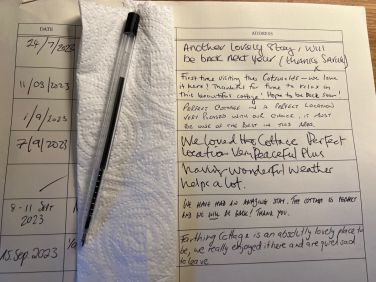 DATE
ADDRESS
24/7/2023
Another lovely stay, will
be back next year (thanks Sarah)
11/08/2023
First time visiting the Cotswolds – we love
it here! Thankful for time to relax in
this beautiful cottage! Hope to be back soon!
1/9/2023
PERFECT COTTAGE IN A PERFECT LOCATION
VERY PLEASED WITH OUR CHOICE, IT MUST
BE ONE OF THE BEST IN THIS AREA.
7/9/2023
We Loved the Cottage Perfect
location Very Peaceful Plus
having Wonderful Weather
helps a lot.
8-11 SEPT
2023
WE HAVE HAD AN AMAZING STAY. THE COTTAGE IS PERFECT
AND WE WILL BE BACK! THANK YOU.
15. Sep. 2023
Farthing Cottage is an absolutely lovely place to
be, we really enjoyed it here and are quite sad
to leave